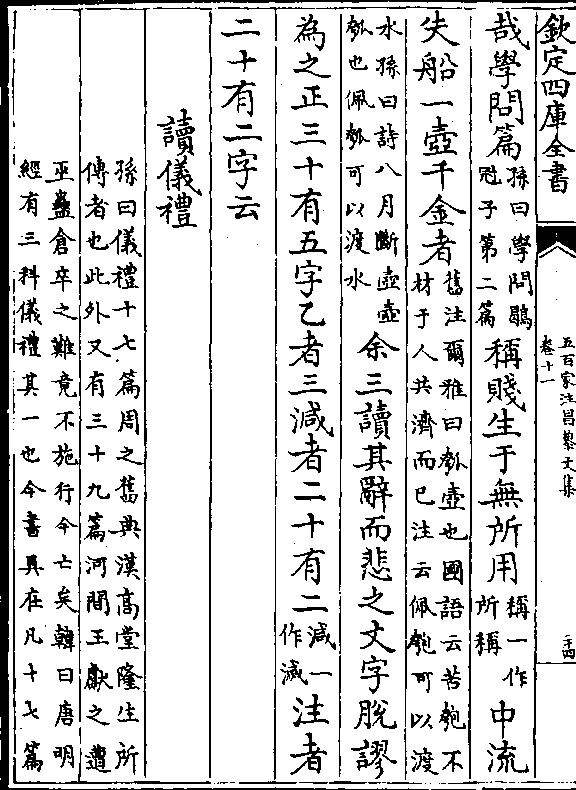 欽定四庫全書
五百家注昌黎文集
卷十一
二十四
哉學問篇孫曰學問鶡冠子第二篇稱賤生于無所用稱一作所稱中流
失船一壺千金者舊注爾雅曰瓠壺也國語云苦匏不材于人共濟而已注云佩匏可以渡
水孫曰詩八月斷壺壺瓠也佩瓠可以渡水余三讀其辭而悲之文字脫謬
為之正三十有五字乙者三減者二十有二減一作滅注者
二十有二字云
讀儀禮
孫曰儀禮十七篇周之舊典漢高堂隆生所傳者也此外又有三十九篇河間王獻之遭
巫蠱倉卒之難竟不施行今亡矣韓曰唐明經有三科儀禮其一也今書具在凡十七篇